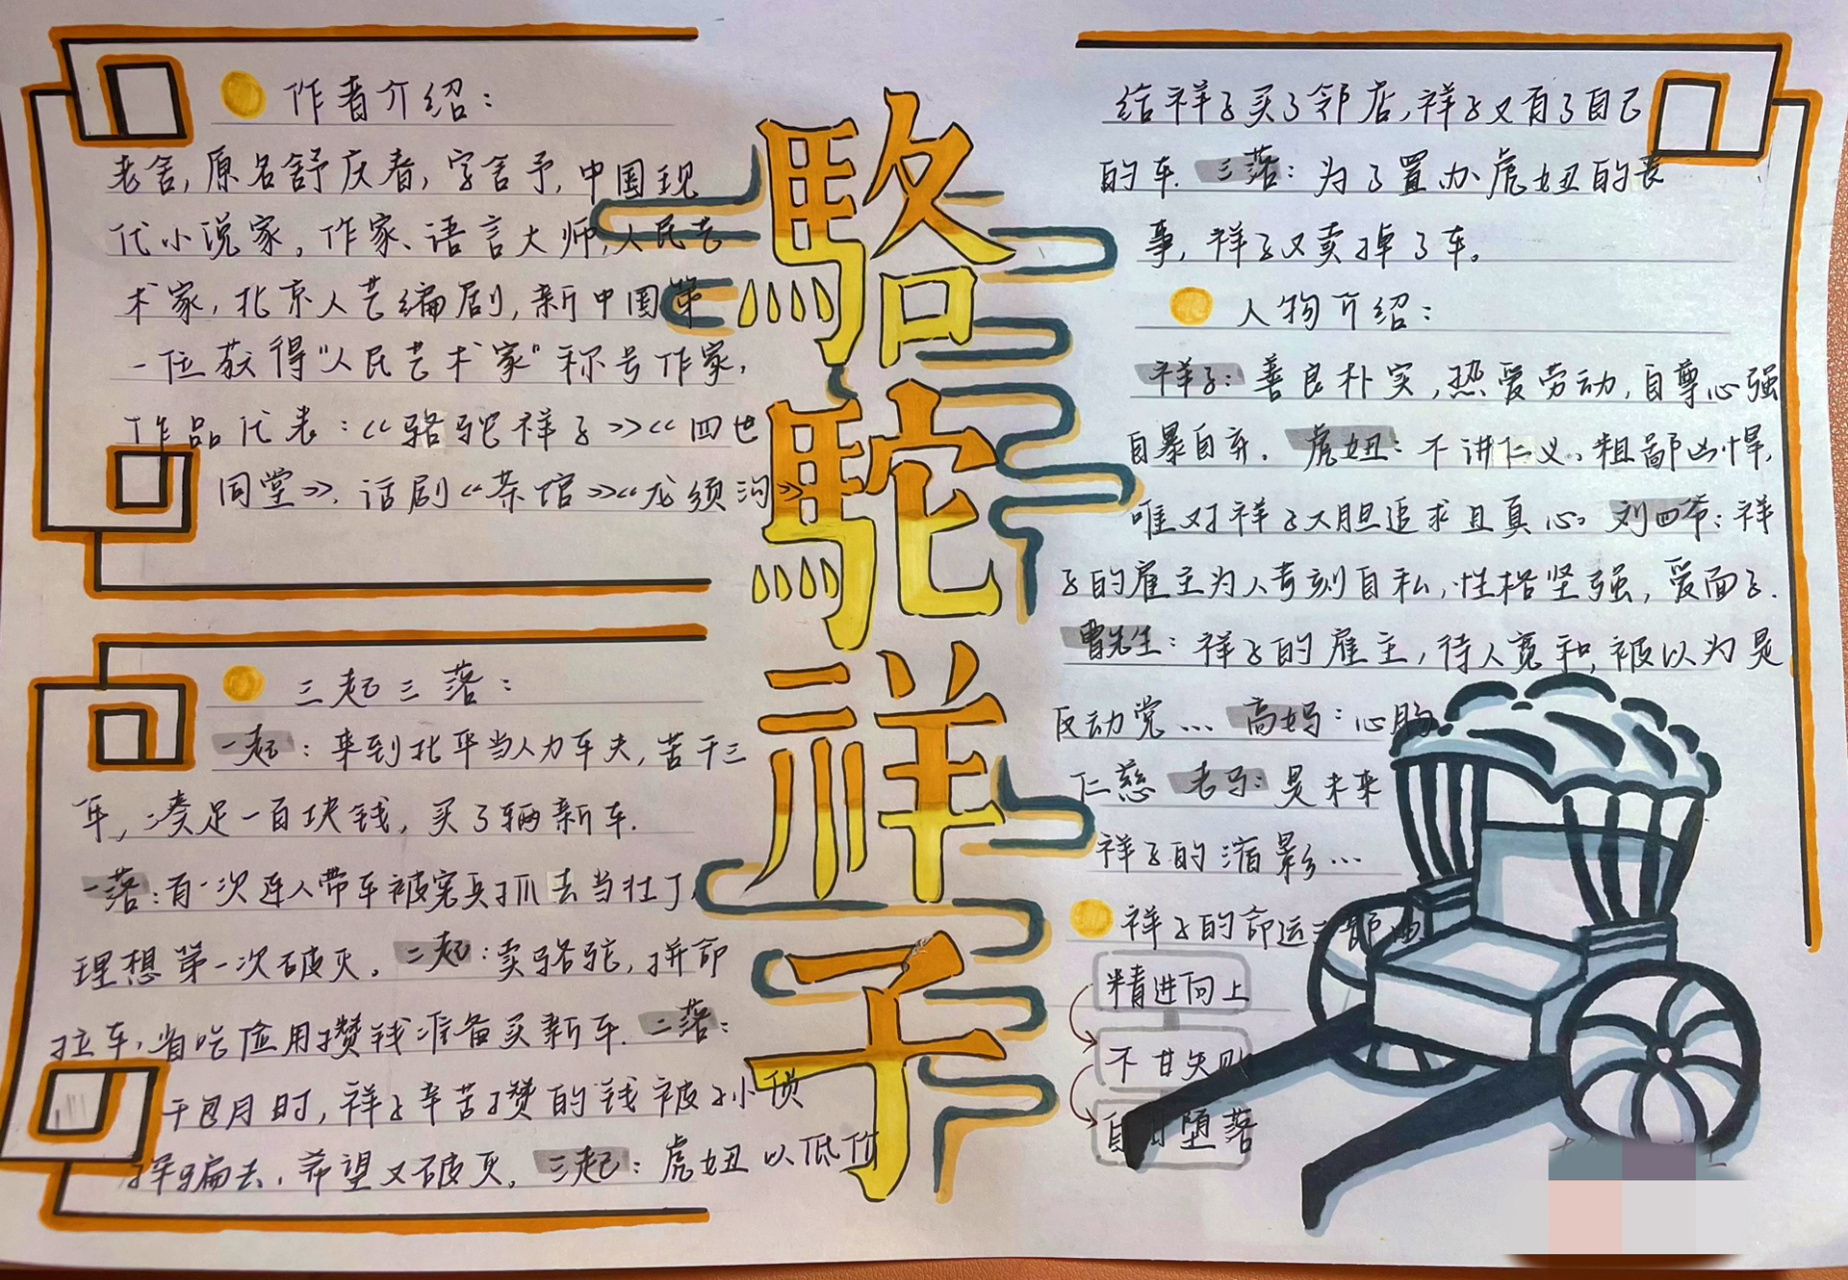 作者介绍：
老舍，原名舒庆春，字舍予，中国现
代小说家，作家、语言大师，人民艺
术家，北京人艺编剧，新中国第
一位获得“人民艺术家”称号作家，
作品代表：《骆驼祥子》《四世
同堂》，话剧《茶馆》《龙须沟》
三起三落：
一起：来到北平当人力车夫，苦干三
年，凑足一百块钱，买了辆新车.
一落：有一次连人带车被宪兵抓去当壮丁，
理想第一次破灭。二起：卖骆驼，拼命
拉车，省吃俭用攒钱准备买新车.二落：
干包月时，祥子辛苦攒的钱被孙侦
探骗去，希望又破灭。三起：虎妞以低价
駱駝祥子
给祥子买了邻店，祥子又有了自己
的车.三落：为了置办虎妞的丧
事，祥子又卖掉了车。
人物介绍：
祥子：善良朴实，热爱劳动，自尊心强
自暴自弃.虎妞：不讲仁义、粗鄙凶悍，
唯对祥子大胆追求且真心。刘四爷：祥
子的雇主为人苛刻自私，性格坚强，爱面子.
曹先生：祥子的雇主，待人宽和，被以为是
反动党…高妈：心胸
仁慈 老马：是未来
祥子的渐影…
祥子的命运三部曲
精进向上
不甘失败
自甘堕落